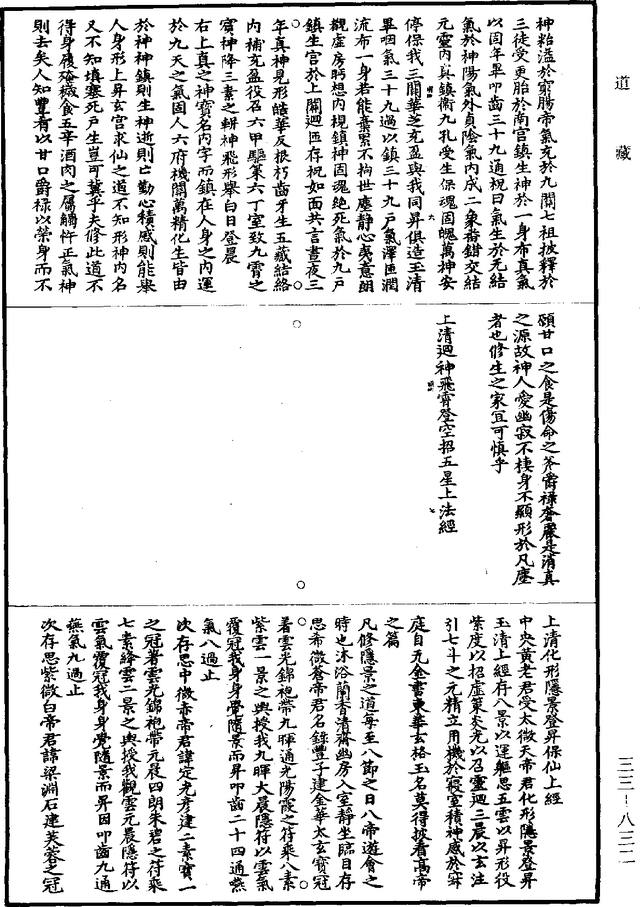 道藏
神粘溢於窮腸帝氣充於九關七祖披釋於
三徒受更胎於南宫鎮生神於一身布真氣
以固年畢叩齒三十九通祝曰氣生於无結
氣於神陽氣外貞陰氣内成二象番錯交結
元靈内真鎮衛九孔受生保魂固魄萬神安
停保我三關華芝充盈與我同昇俱造玉清
畢咽氣三十九過以鎮三十九户氣澤匝潤
流布一身若能棄累不拘世塵靜心夷意朗
觀虚房眄想内視鎮神固魂絶死氣於九户
鎮生宫於上關迴匝存祝如面共言晝夜三
年真神見形皓華反根朽齒牙生五藏結絡
内補充盈役召六甲驅策六丁室致九霄之
賓神降三素之軿神飛形舉白日登晨
右上真之神寶名内字而鎮在人身之内運
於九天之氣固人六府機關萬精化生皆由
於神神鎮則生神逝則亡勤心積感則能舉
人身形上昇玄宫求仙之道不知形神内名
又不知填塞死户生豈可冀乎夫修此道不
得身履殗穢食五辛酒肉之屬觸忤正氣神
則去矣人知豐肴以甘口爵禄以榮身而不
顧甘口之食是傷命之斧爵禄奢麗是消真
之源故神人愛幽寂不棲身不顯形於凡塵
者也修生之家宜可慎乎
上清迴神飛霄登空招五星上法經
上清化形隱景登昇保仙上經
中央黄老君受太微天帝君化形隱景登昇
玉清上經存八景以運軀思五雲以昇形役
紫度以招虚策炎光以召靈迴三晨以玄注
引七斗之元精立用機於寢室積神感於窮
庭自无金書東華玄格玉名莫得披看髙帝
之篇
凡修隱景之道每至八節之日八帝遊會之
時也沐浴蘭香清齋幽房入室靜坐臨目存
思希微蒼帝君名錄豐子建金華太玄寶冠
着雲光錦袍帶九暉通光陽霞之符乘八素
紫雲一景之輿授我九暉大晨隱符以雲氣
覆冠我身身覺隨景而昇叩齒二十四通嚥
氣八過止
次存思中微赤帝君諱定光彦建二素寶一
之冠著雲光錦袍帶元晨四朗朱碧之符乘
七素絳雲二景之輿授我觀雲元晨隱符以
雲氣覆冠我身身覺隨景而昇因叩齒九通
嚥氣九過止
次存思紫微白帝君諱梁淵石建芙蓉之冠
三三－八三二